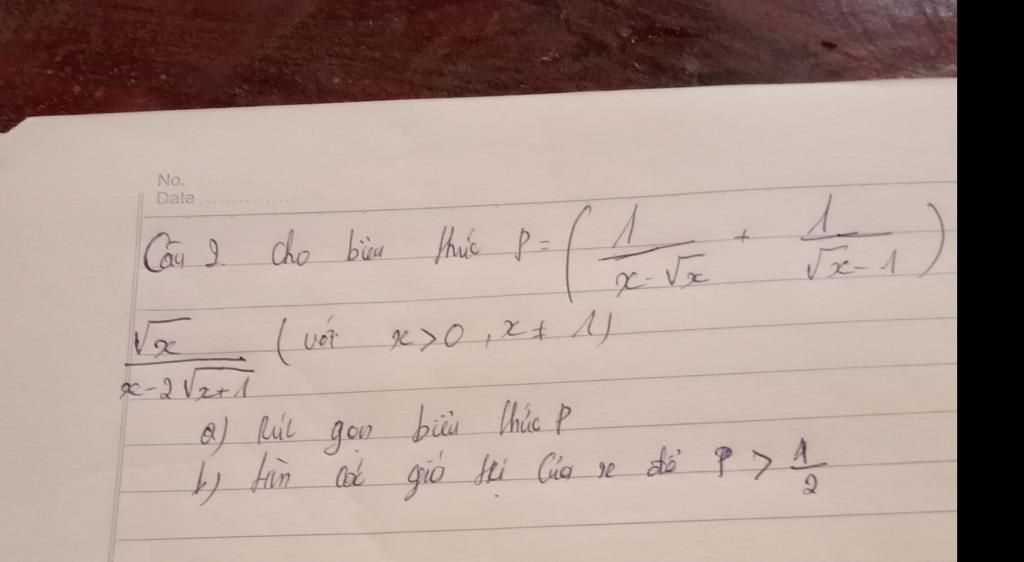 No. ............
Date ........................
Câu 2 Cho biểu thức P = ( 1/(x - √x) + 1/(√x - 1) )
√x/(x - 2√(x+1)) (với x > 0, x ≠ 1)
a) Rút gọn biểu thức P
b) tìm các giá trị của x để P > 1/2